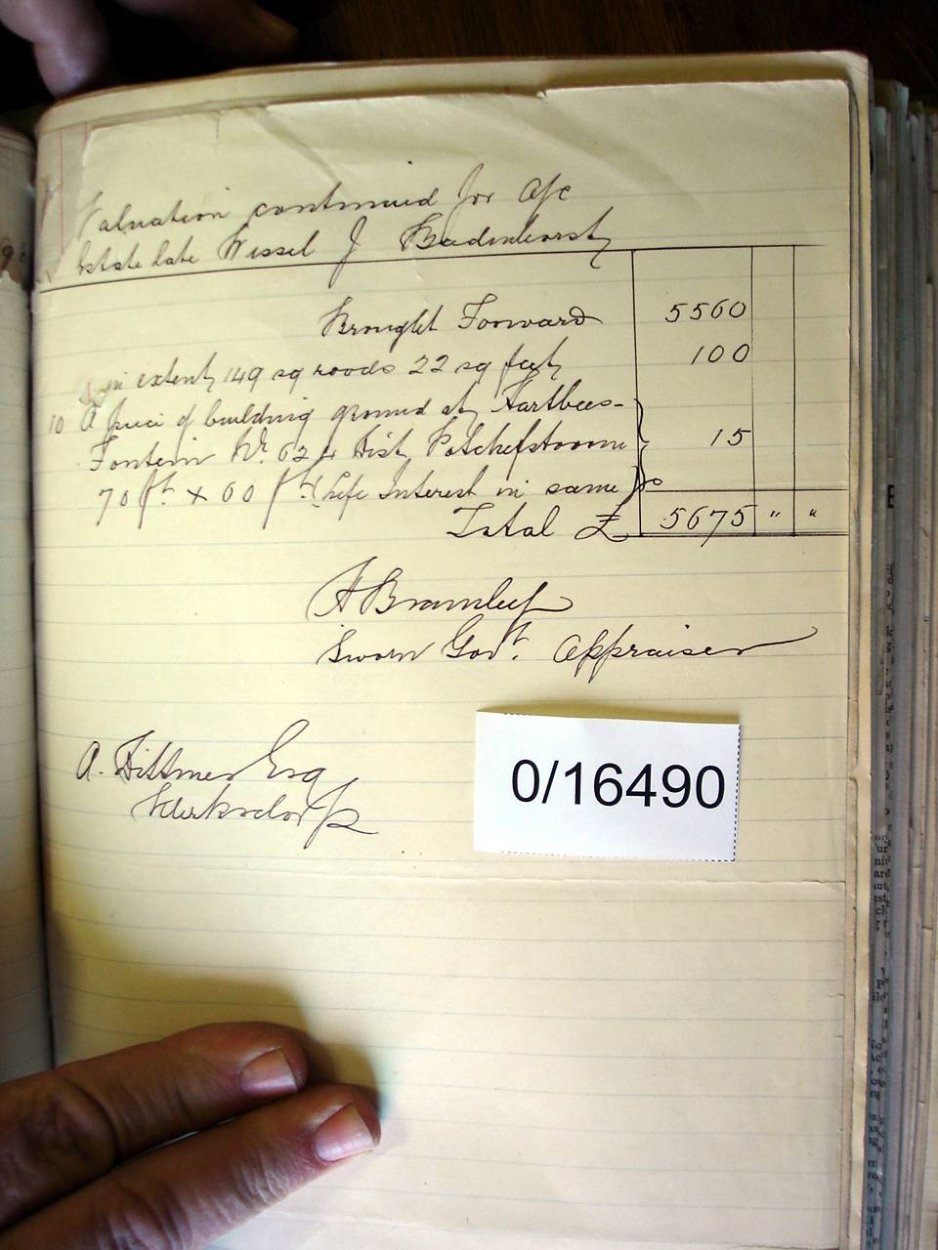 Valuation continued for a/c
Estate late Wessel J Badenhorst
Brought Forward 5560
in extent 149 sq roods 22 sq feet 100
10 A piece of building ground at Hartbees-
Fontein No. 624 Dist Potchefstroom 15
70 ft x 60 ft (Life Interest in same)
Total £ 5675 " "
A Bramley
Sworn Govt. Appraiser
A. Dittmer Esq
Klerksdorp
0/16490